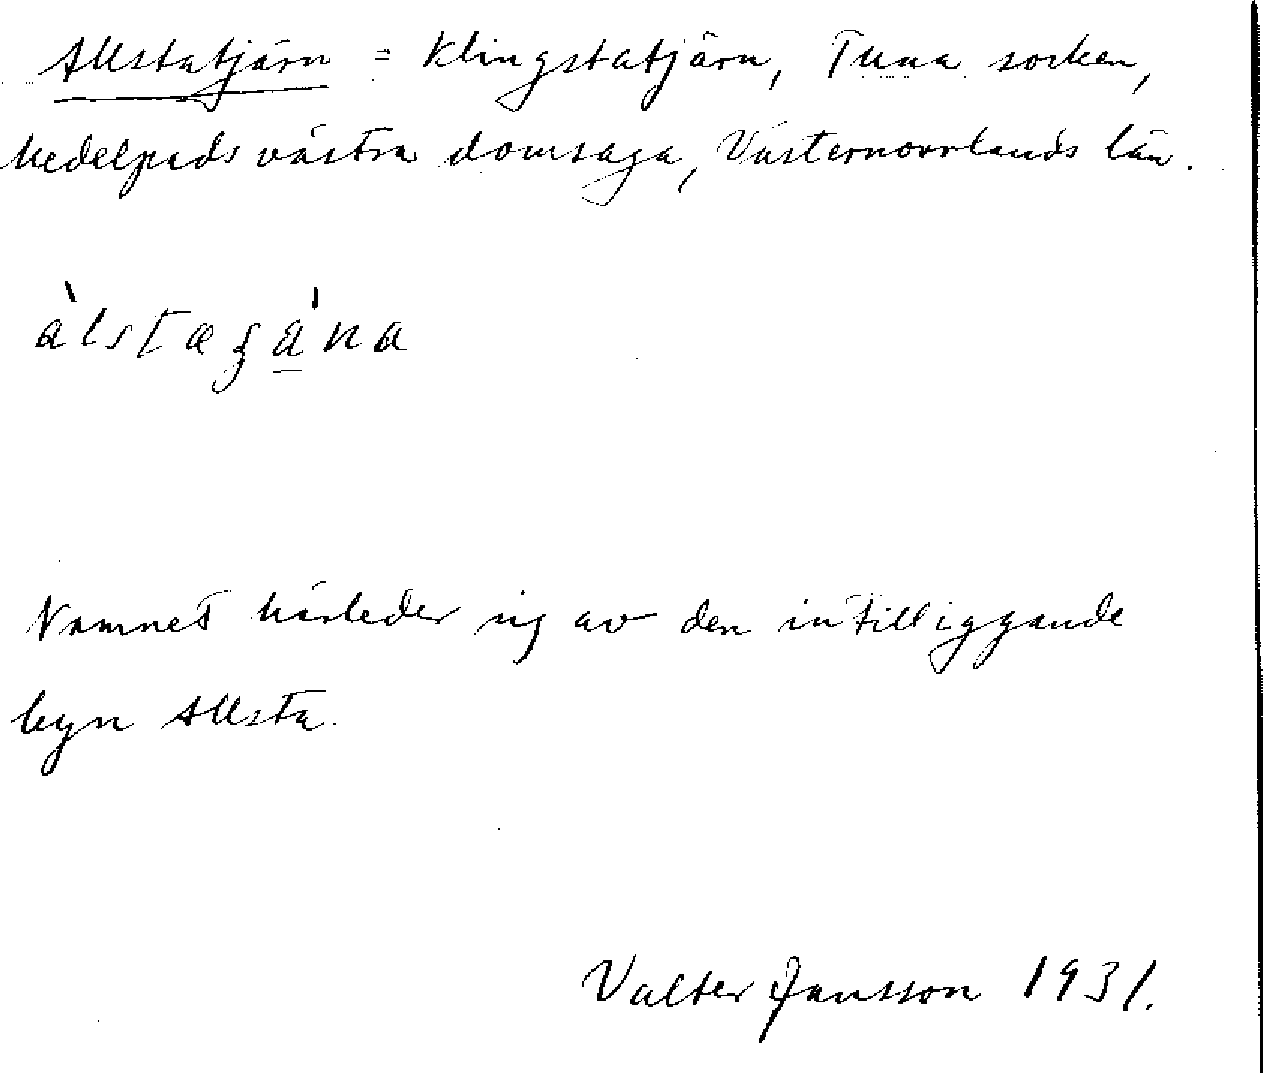 Allstatjärn = Klingstatjärn, Tuna socken,
Medelpads västra domsaga, Västernorrlands län.
Namnet härleder sig av den intilliggande
byn Allsta.
Valter Jansson 1931.